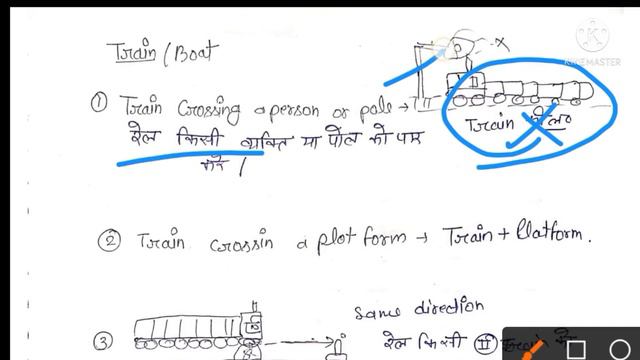 Train/Boat
① Train Crossing a person or pole →
रेल किसी व्यक्ति या पोल को पार
करें /
Train की ल०
P
② Train crossin a plot form → Train + Platform.
KINEMASTER
same direction
③ रेल किसी II Train को